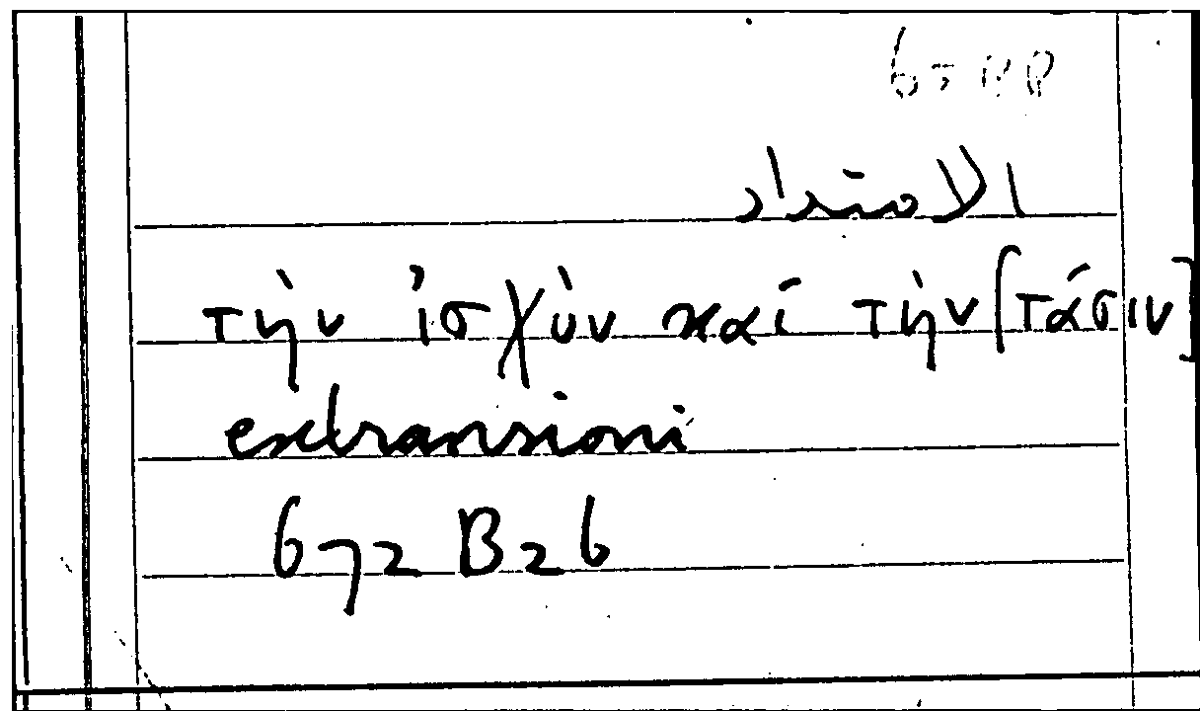 الامتداد
τὴν ἰσχὺν καί τὴν [τάσιν]
extransioni
672 B26